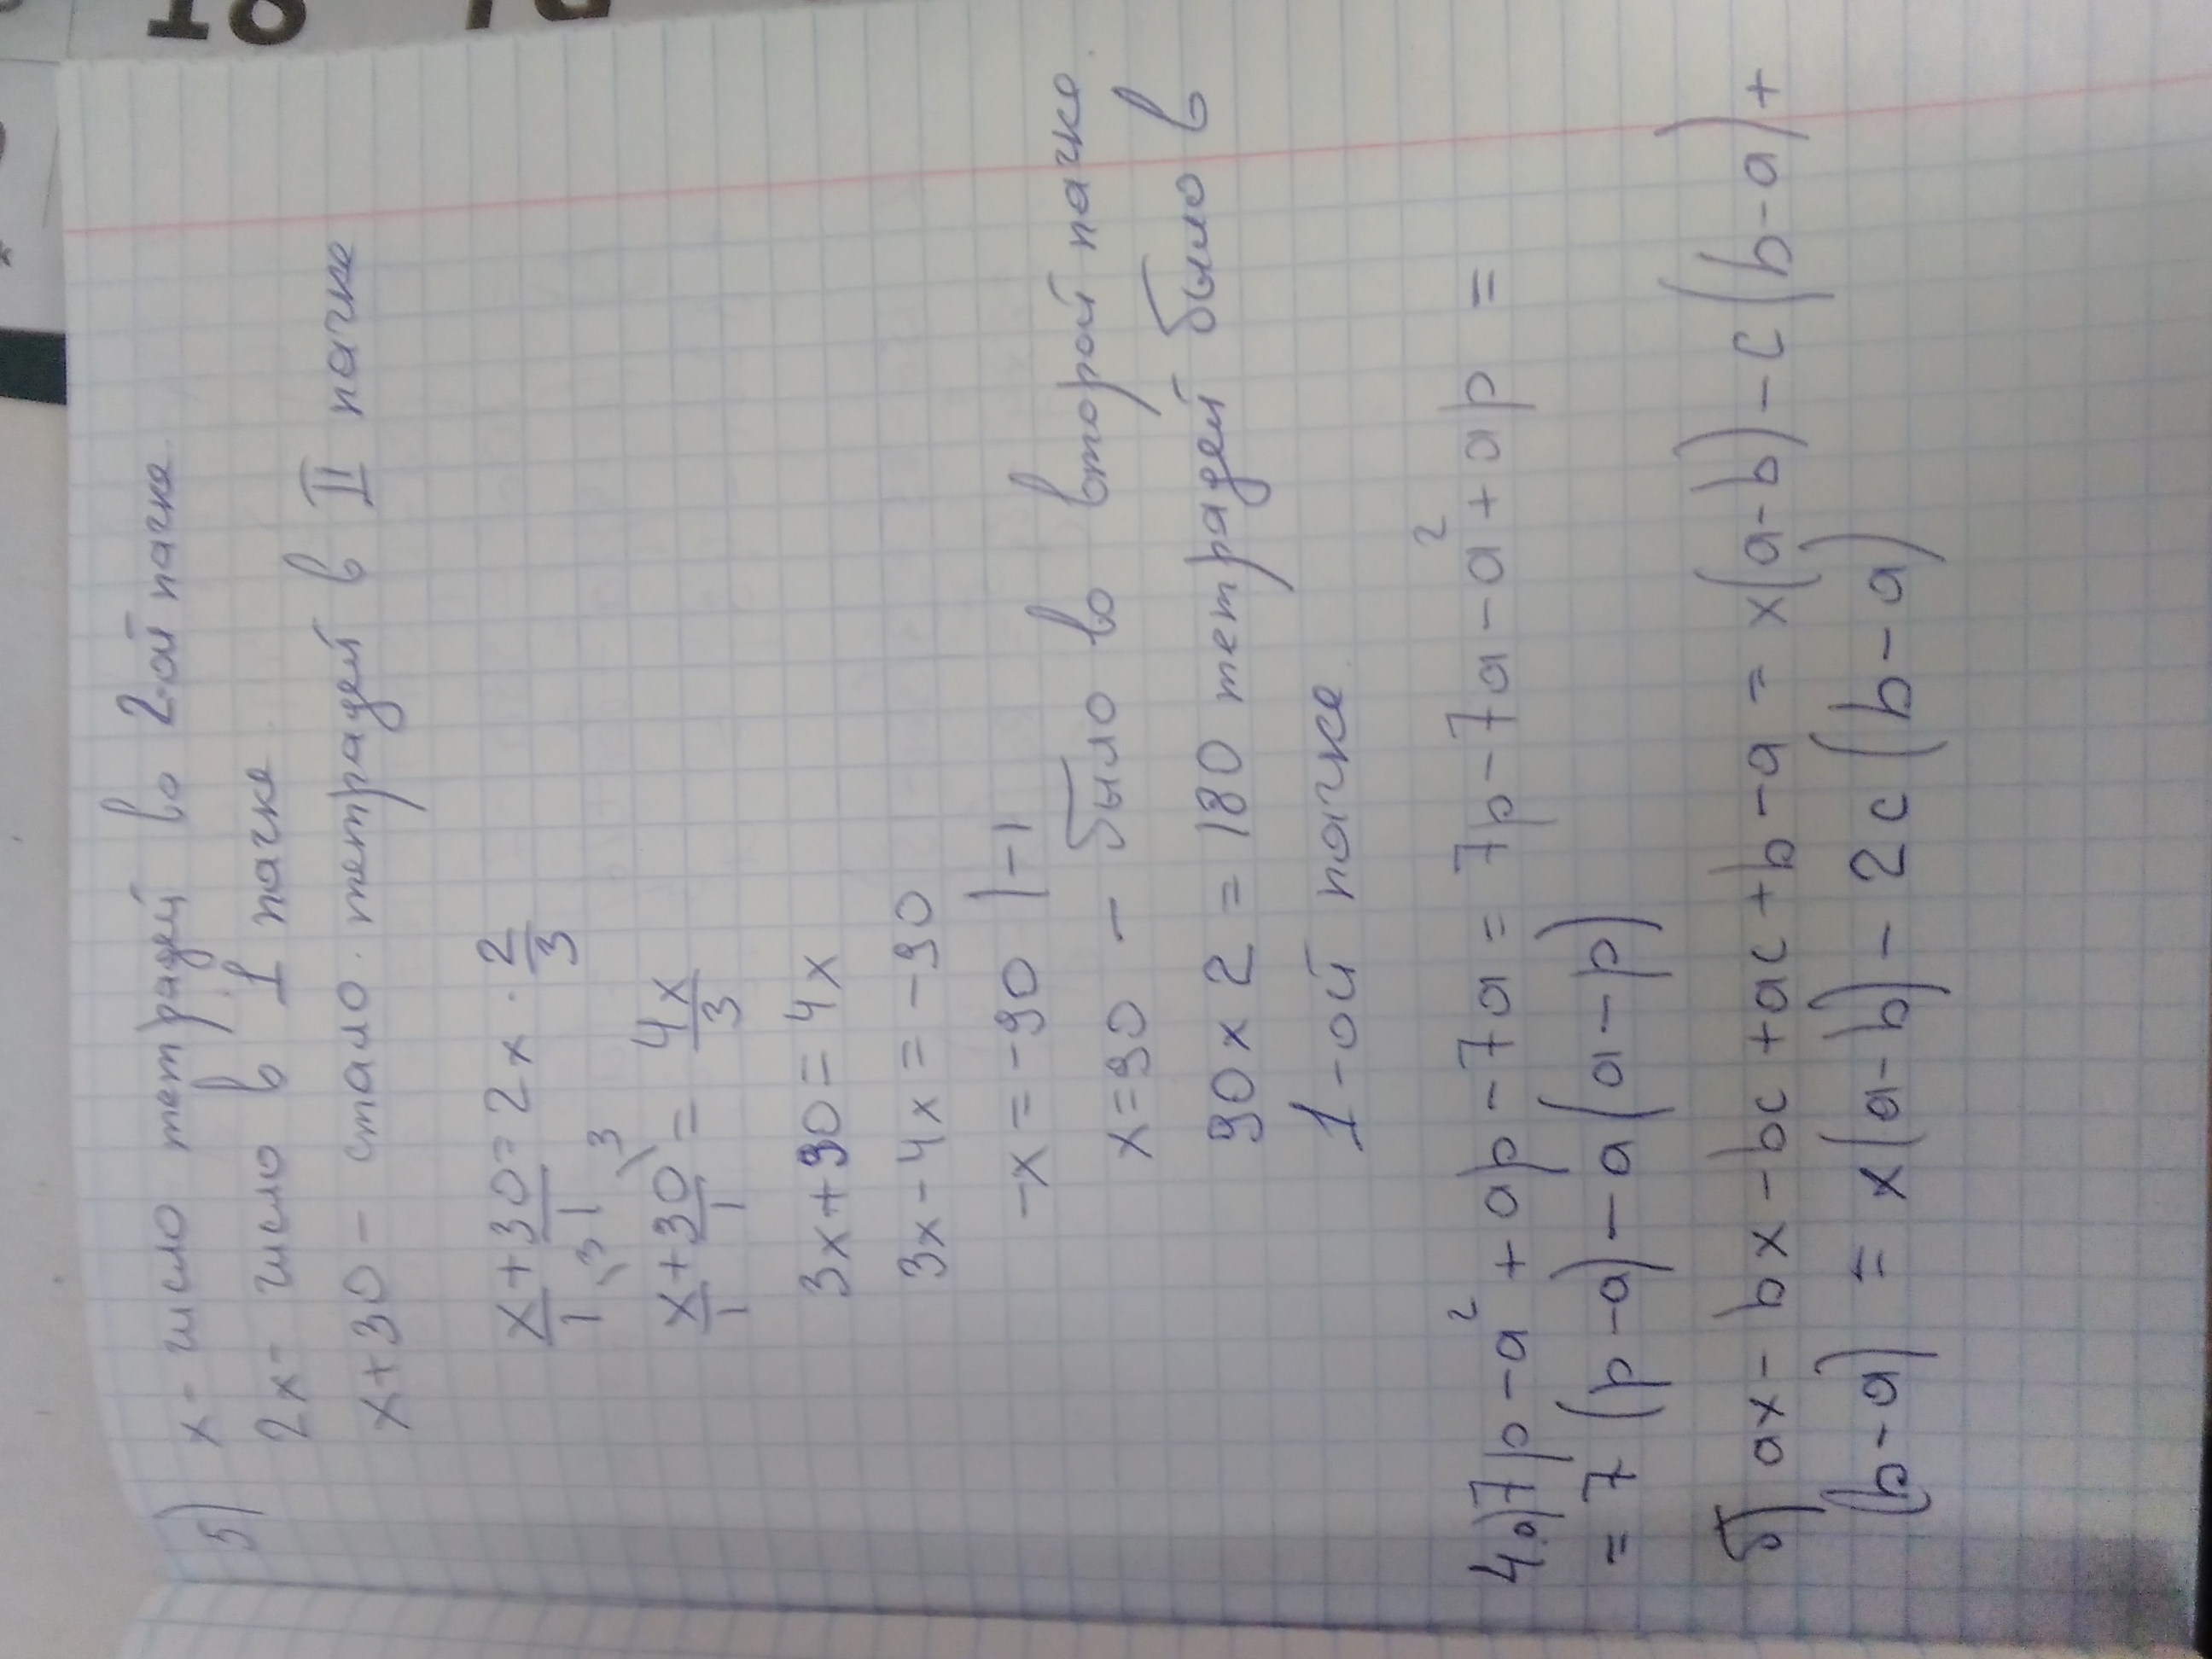 5) x - число тетрадей во 2-ой пачке
2x - число в 1 пачке
x+30 - стало тетрадей в II пачке
x+30=2x · 2/3
1 31
x+30\3 = 4x/3
1 1
3x+90=4x
3x-4x=-90
-x=-90 |-1
x=90 - было во второй пачке
90x2=180 тетрадей было в
1-ой пачке.
4.a) 7p-a²+ap-7a=7p-7a-a²+ap=
=7(p-a)-a(a-p)
б) ax-bx-bc+ac+b-a=x(a-b)-c(b-a)+
(b-a) = x(a-b)-2c(b-a)